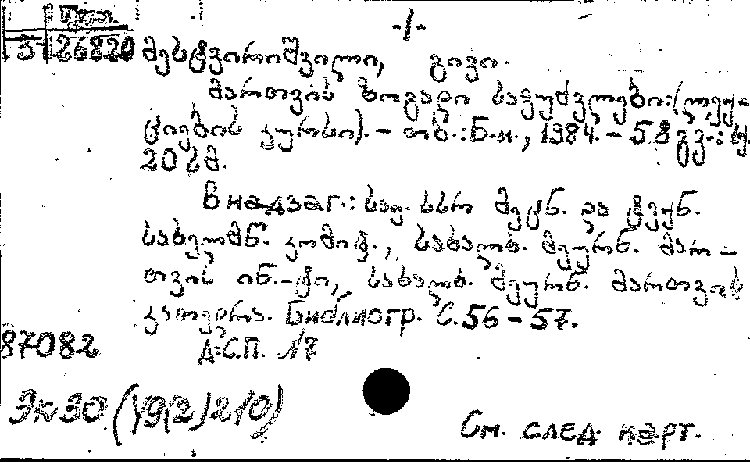 -1-
3-26820 მესტვირიშვილი, გივი.
მართვის ზოგადი საფუძვლები: (ლექ-
ციების კურსი). - თბ.: Б.и., 1984. - 58 გვ.: ს
20 სმ.
В надзаг.: საქ. სსრ მეცნ. და ტექნ.
სახელმწ. კომიტ., სახალხ. მეურნ. მარ-
თვის ინ.-ტი, სახალხ. მეურნ. მართვის
კათედრა. Библиогр. с. 56-57.
87082 Д.С.П. №7
Эк30(У9(2)210)
См. след. карт.